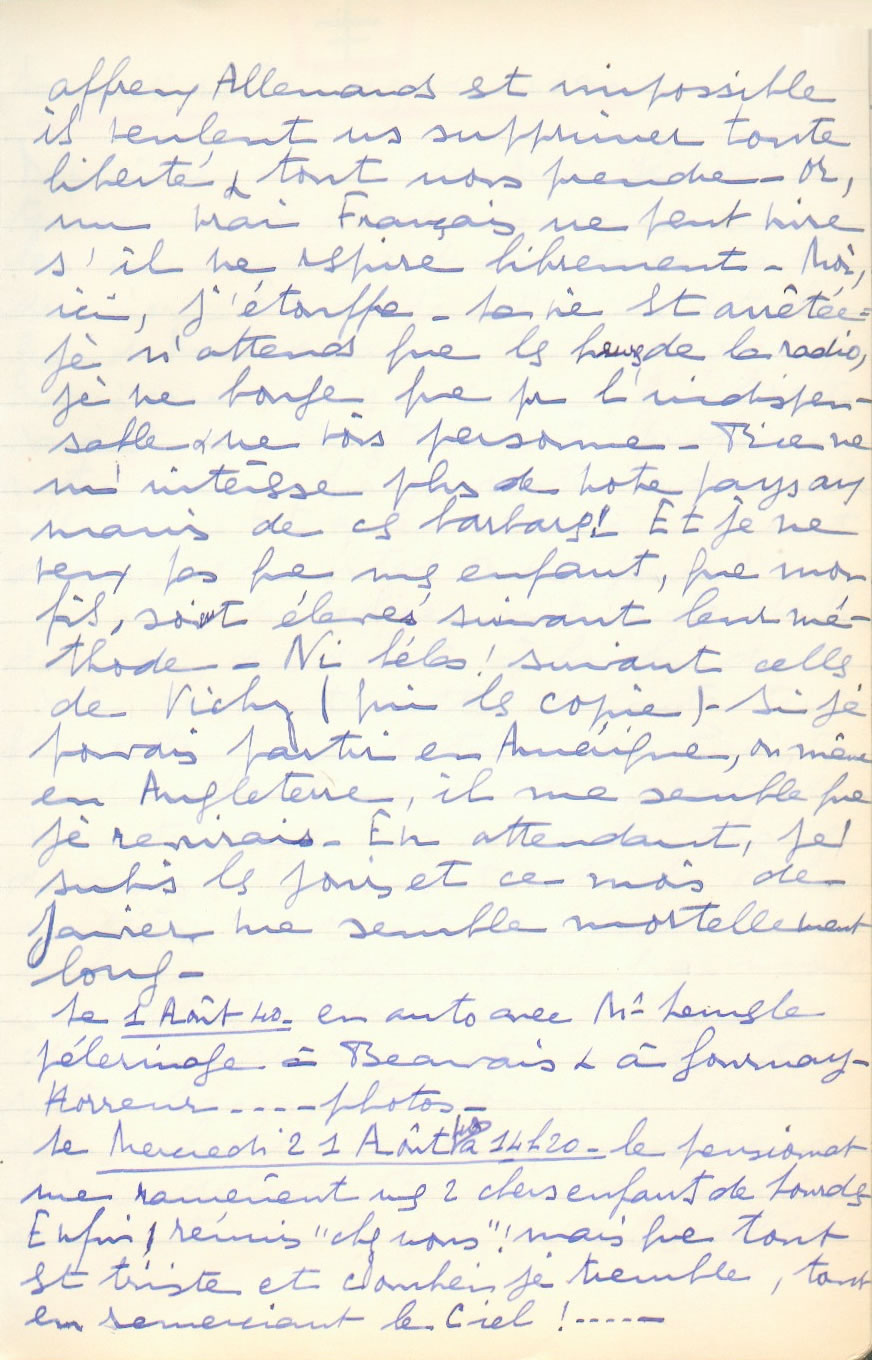 affreux Allemands est impossible
ils veulent ns supprimer toute
liberté, & tout nous prendre - Or,
un vrai Français ne peut vivre
s'il ne respire librement - Moi,
ici, j'étouffe - la vie est arrêtée -
je n'attends que les heures de la radio,
je ne bouge que pr l'indispen-
sable & ne vois personne - Rien ne
m'intéresse plus de notre pays aux
mains de ces barbares! Et je ne
veux pas que mes enfants, que mon
fils, soient élevés suivant leur mé-
thode - Ni hélas! suivant celles
de Vichy (qui les copie) - Si je
pouvais partir en Amérique, ou même
en Angleterre, il me semble que
je revivrais - En attendant, je
subis les jours et ce mois de
Janvier me semble mortellement
long -
Le 1 Août 40 - en auto avec Mr
pélerinage à Beauvais & à Gournay -
Horreur ---- photos -
Le Mercredi 21 Août 40 à 14h20 - le pensionnat
me ramènent mes 2 chers enfants de Lourdes
Enfin, réunis "chez nous"! mais que tout
est triste et combien je tremble, tout
en remerciant le Ciel ! -----